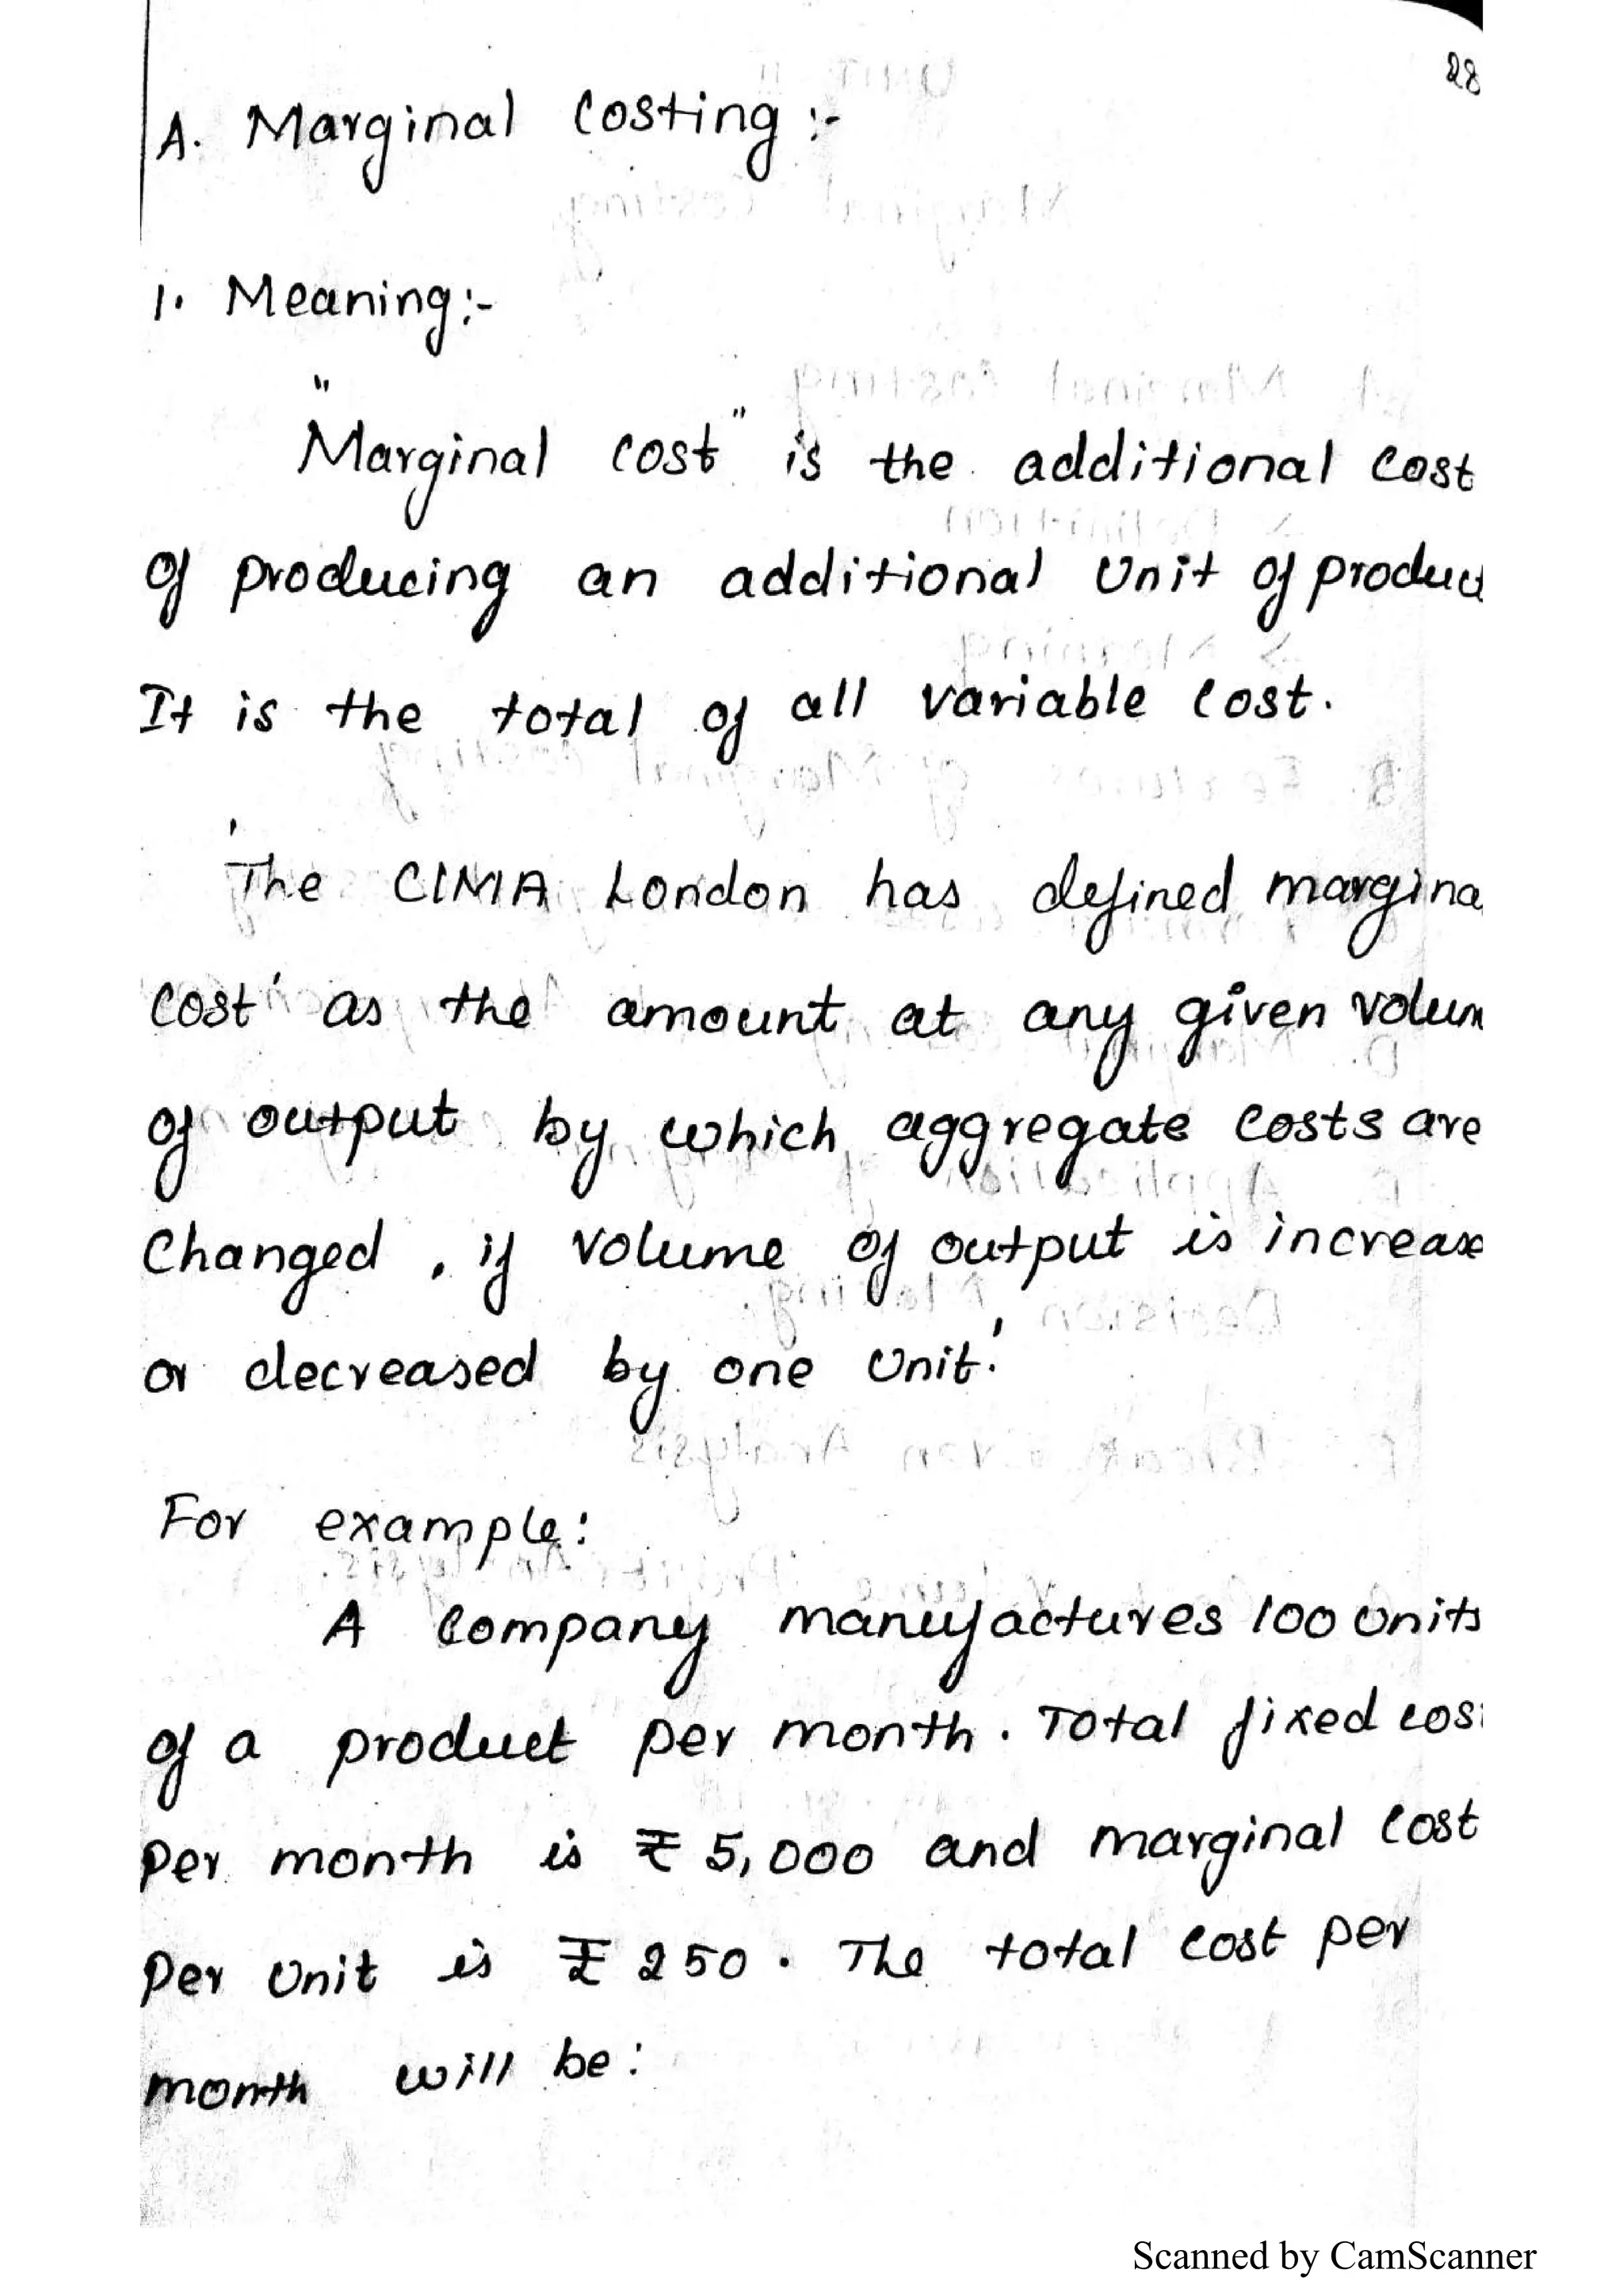 28
A. Marginal Costing :-
1. Meaning:-
"Marginal cost" is the additional cost
of producing an additional Unit of produc
It is the total of all variable cost.
'The CIMA London has defined margina
cost' as the amount at any given volum
of output by which aggregate costs are
Changed, if volume of output is increase
or decreased by one Unit.'
For example:
A Company manufactures 100 Units
of a product per month. Total fixed cos
Per month is ₹ 5,000 and marginal cost
Per Unit is ₹ 250. The total cost per
month will be:
Scanned by CamScanner